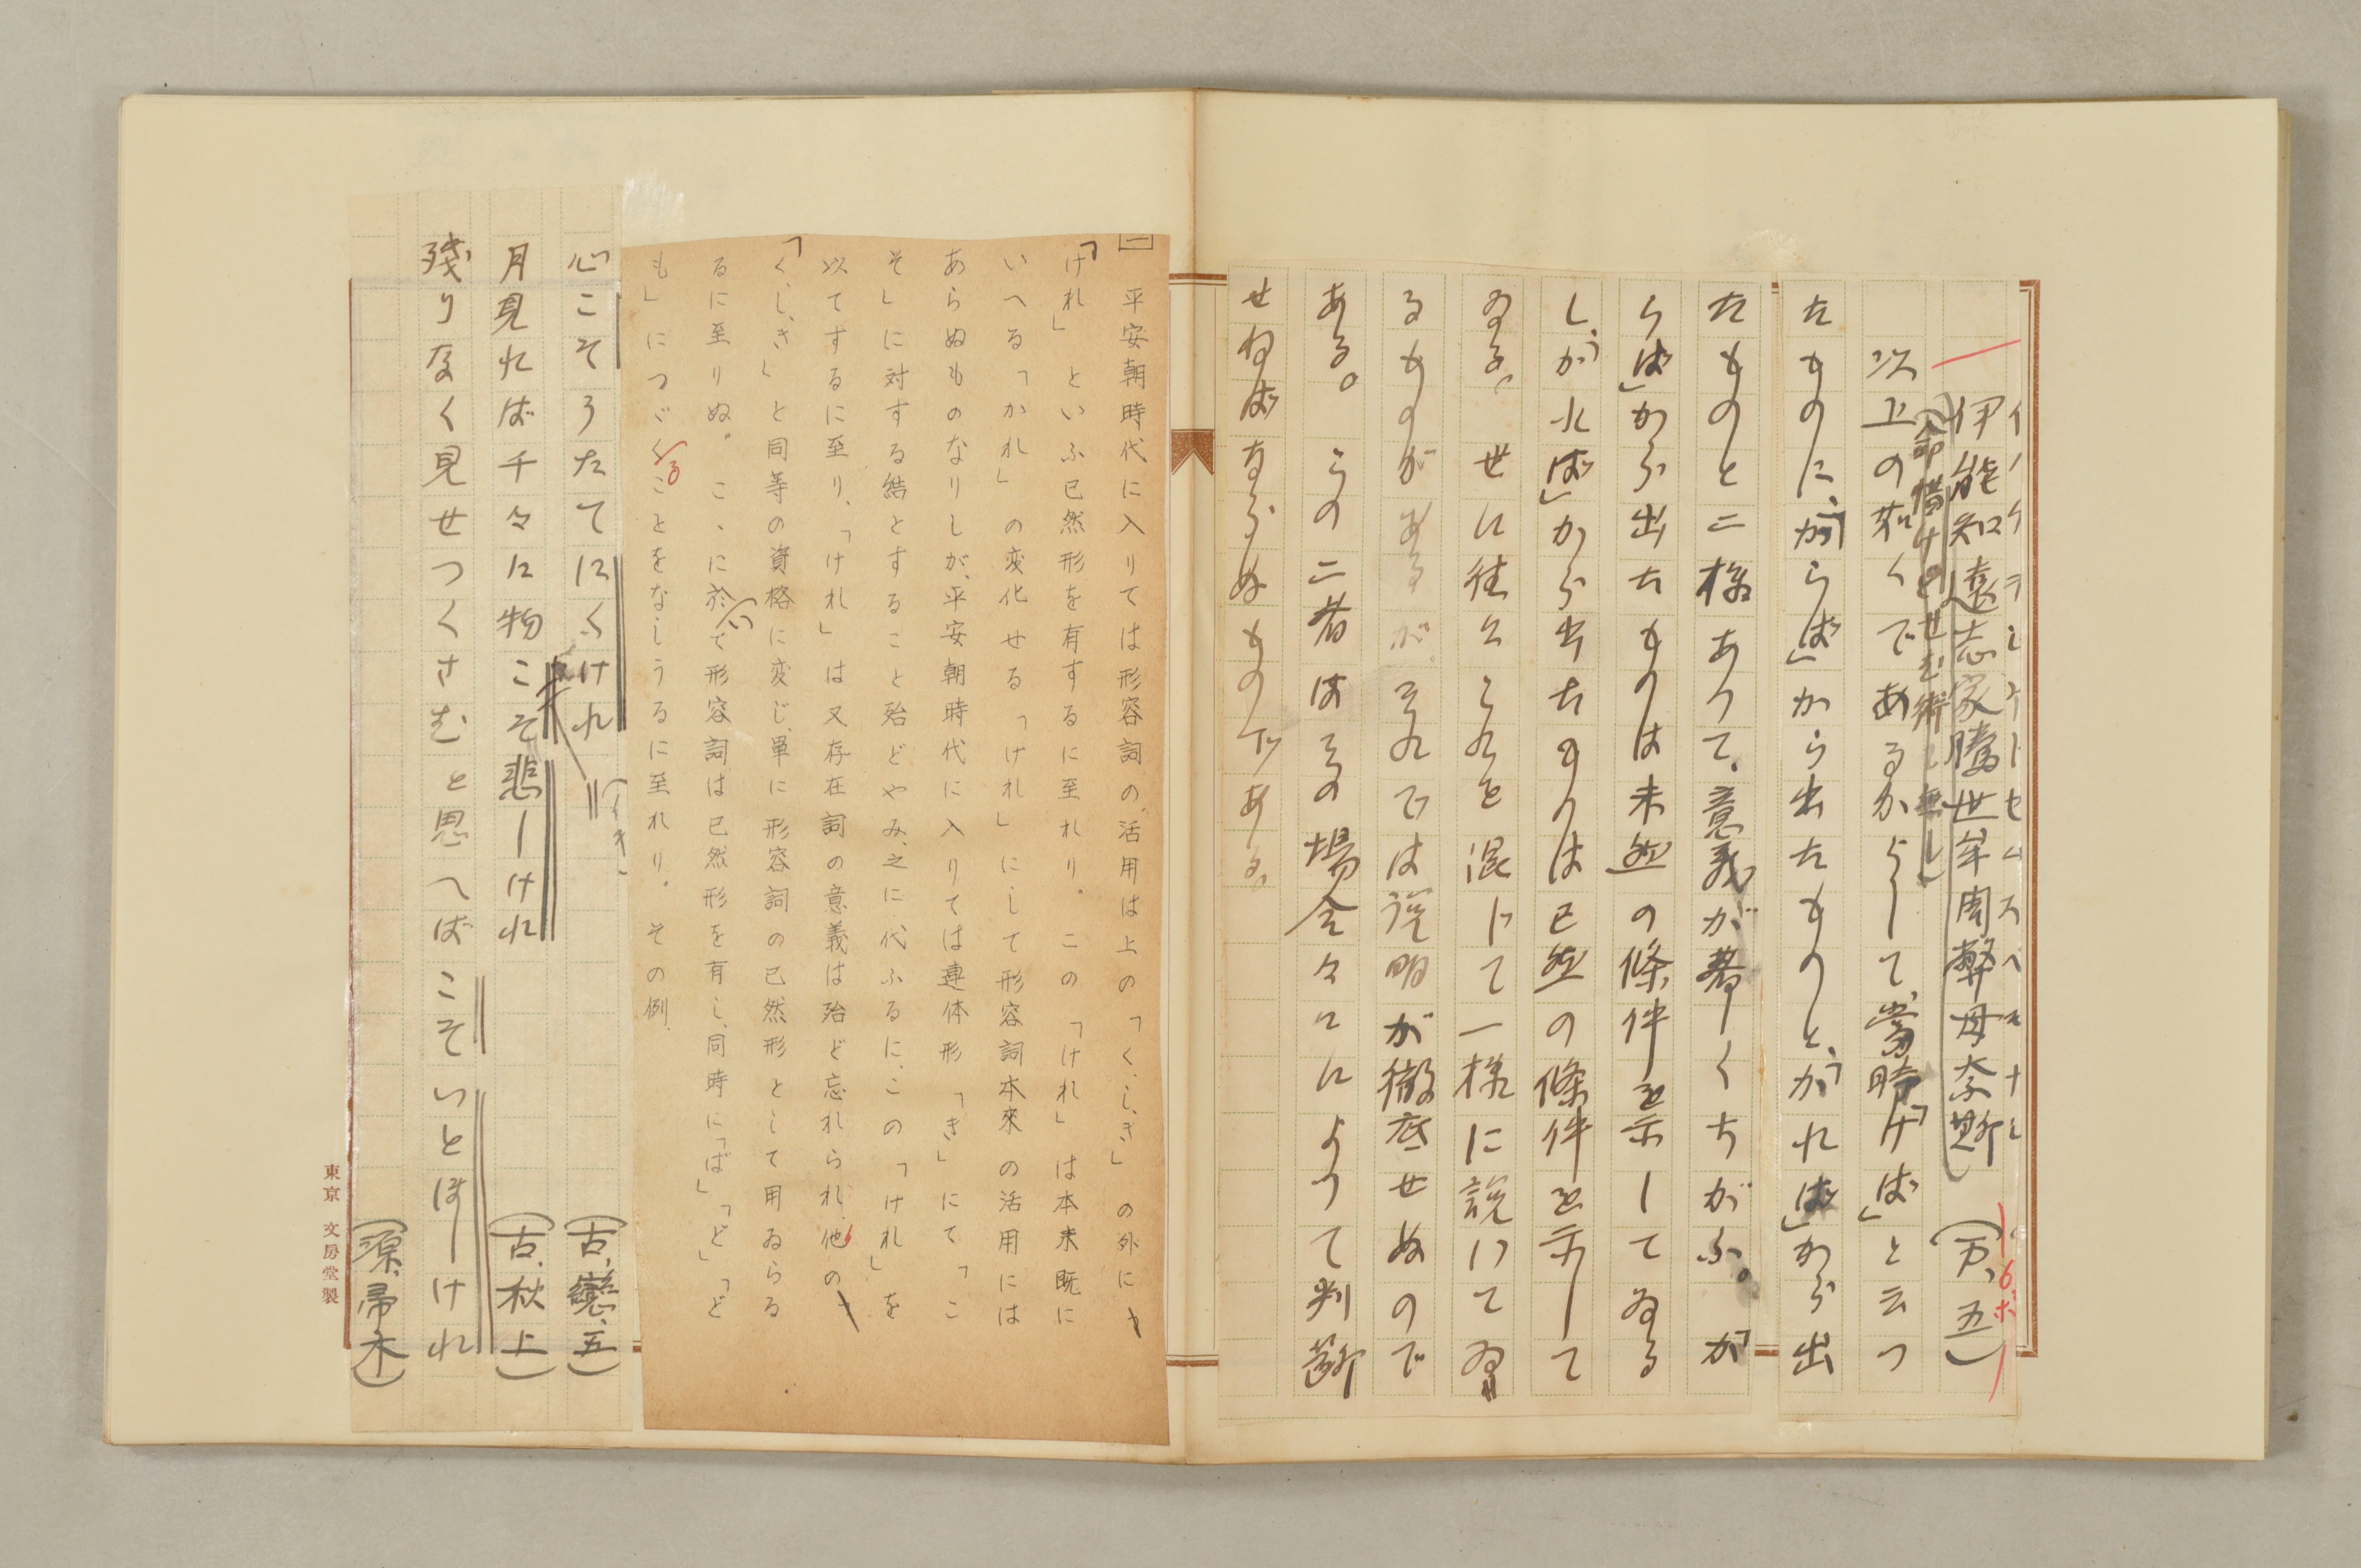 イノチヲシケドセムスベモナシ
伊能知遠志家騰世牟周弊母奈斯 (万、五)
(命惜けどせむ術も無し)
16ポ
以上の如くであるからして、當時「けば」と云つ
たものに、「からば」から出たものと、「かれば」から出
たものと二様あつて、意義が著しくちがふ。「か
らば」から出たものは未然の條件を示してゐる
し、「かれば」から出たものは已然の條件を示して
ゐる。世に往々これを混じて一様に説いてゐ
るものがあるが、それでは説明が徹底せぬので
ある。この二者はその場合々々によつて判斷
せねばならぬものである。
一
平安朝時代に入りては形容詞の活用は上の「く、し、き」の外に
「けれ」といふ已然形を有するに至れり。この「けれ」は本来既に
いへる「かれ」の変化せる「けれ」にして形容詞本來の活用には
あらぬものなりしが、平安朝時代に入りては連体形「き」にて「こ
そ」に対する結とすること殆どやみ、之に代ふるに、この「けれ」を
以てするに至り、「けれ」は又存在詞の意義は殆ど忘れられ、他の
「く、し、き」と同等の資格に変じ、單に形容詞の已然形として用ゐらる
るに至りぬ。こゝに於て形容詞は已然形を有し、同時に「ば」「ど」「ど
も」につづくることをなしうるに至れり。その例、
心こそうたてにくけれ (古、戀、五)
月見れば千々に物こそ悲しけれ (古、秋上)
殘りなく見せつくさむと思へばこそいとほしけれ
(源、帚木)
東京 文房堂製